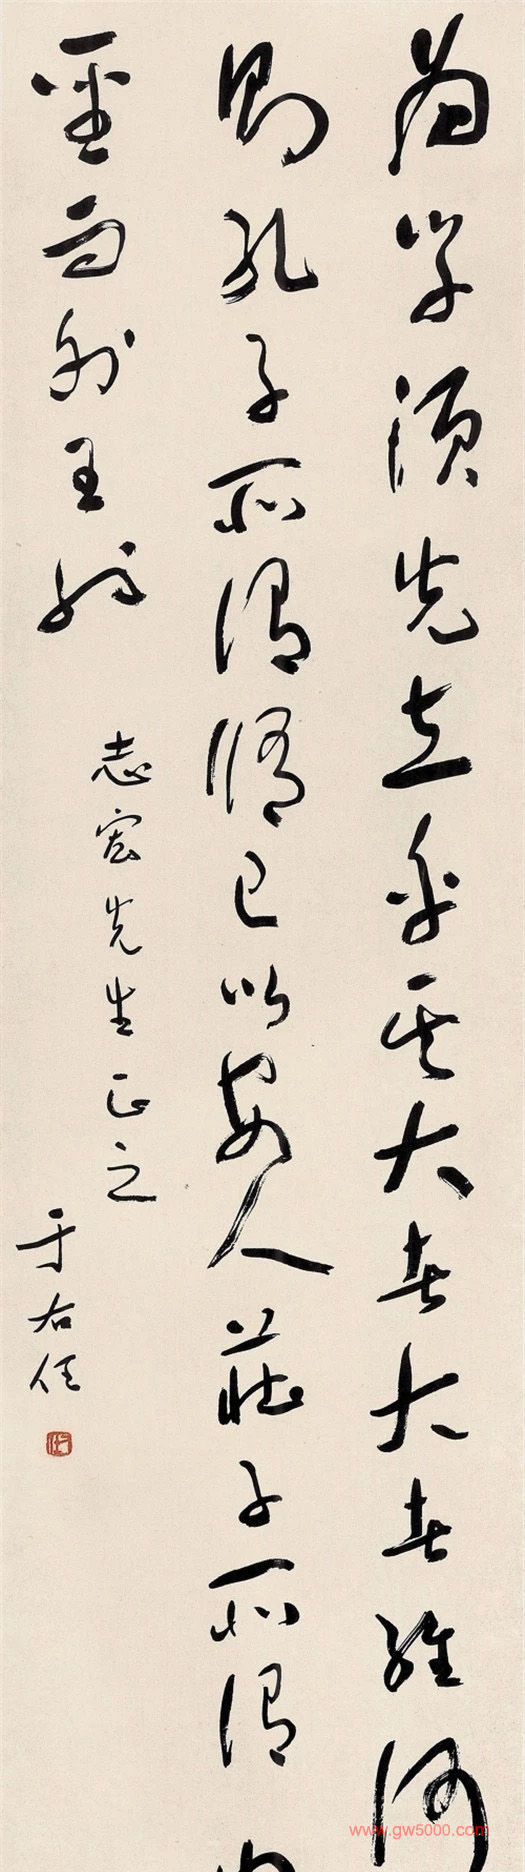 為學須先立乎其大者大者維何
則孔子所謂脩己以安人莊子所謂內
聖而外王諸
志宏先生正之
于右任
www.gw5000.com